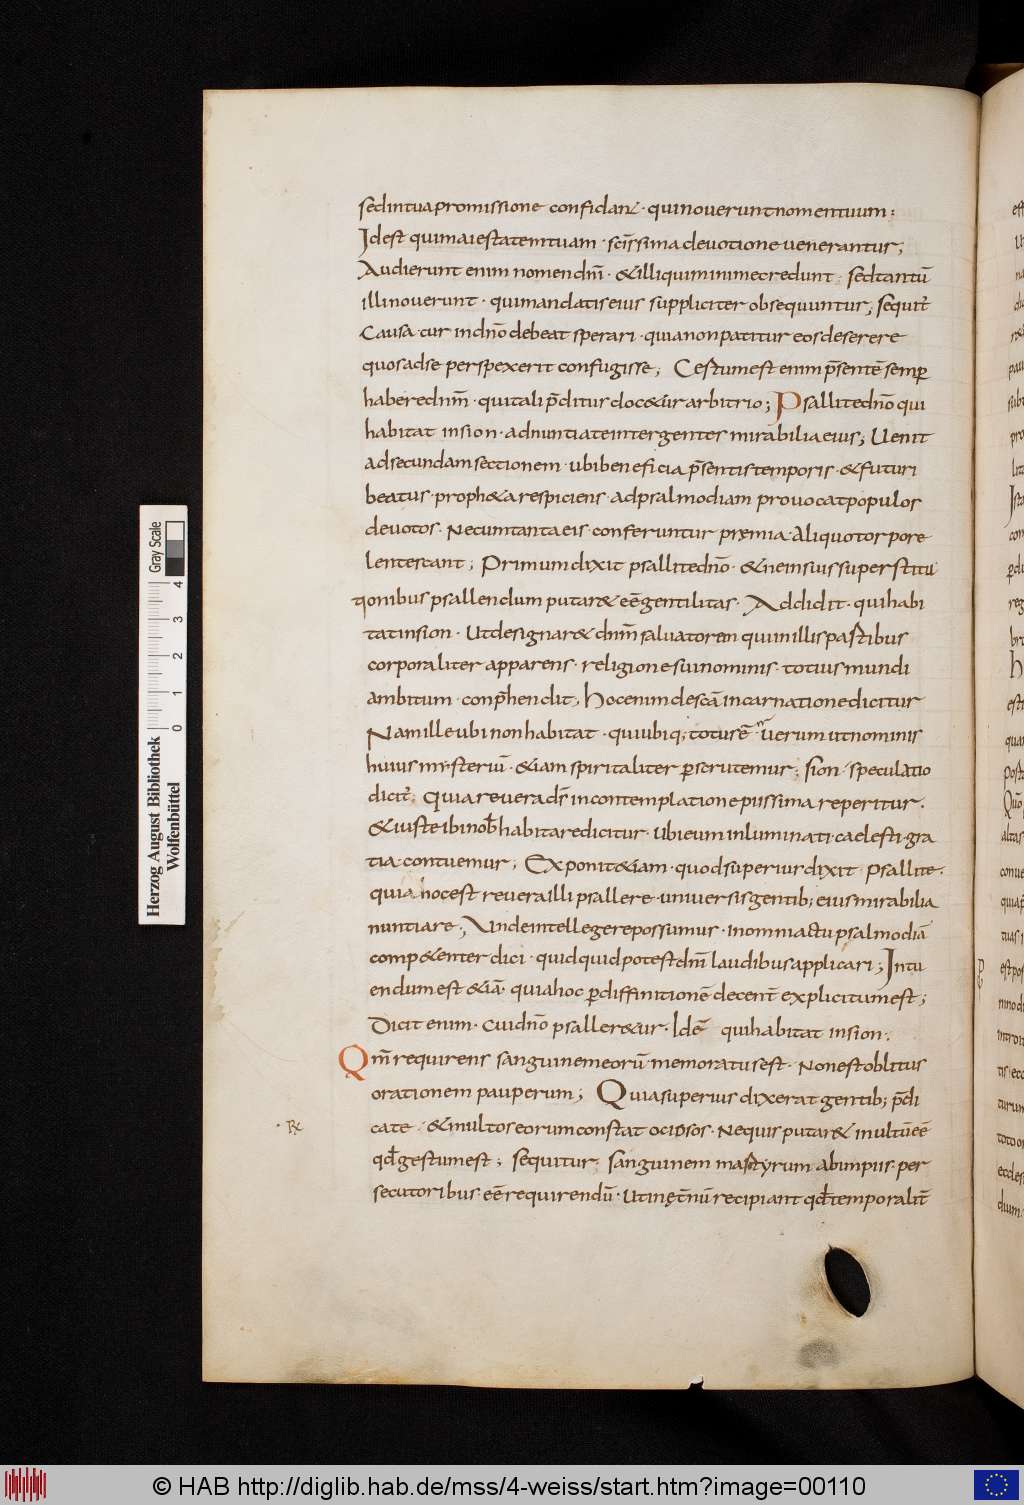 sed in tua promissione confidant · qui noverunt nomen tuum ;
Idest qui maiestatem tuam · sc̄issima devotione venerantur ;
Audierunt enim nomen dn̄i · & illi qui minime credunt · sed tantū
illi noverunt · qui mandatis eius suppliciter obsequuntur ; sequit̄
Causa cur in dn̄o debeat sperari · quia non patitur eos deserere
quos ad se perspexerit confugisse ; Certum est enim p̄sentē semp̄
habere dnm̄ · qui tali p̄ditur doc&ur arbitrio ; Psallite dn̄o qui
habitat in sion · adnuntiate inter gentes mirabilia eius ; Venit
ad secundam sectionem · ubi beneficia p̄sentis temporis · & futuri
beatus · proph&a respiciens · ad psalmodiam provocat populos
devotos · Ne cum tanta eis conferuntur premia · Aliquo torpore
lentescant ; Primum dixit psallite dn̄o · & ne in suis superstitu
tionibus psallendum putar& eē gentilitas · Addidit · qui habi
tat in sion · Ut designar& dnm̄ salvatorem qui in illis partibus
corporaliter apparens · religione sui nominis · totius mundi
ambitum · conp̄hendit ; Hoc enim de scā incarnatione dicitur
Nam ille ubi non habitat · qui ubiq; totus ē verum ut nominis
huius mysteriū · &iam spiritaliter p̄scrutemur ; sion · speculatio
dicit̄ · Quia revera ds̄ in contemplatione piissima reperitur .
& iuste ibi nob̄ habitare dicitur · Ubi eum inluminati · caelesti gra
tia contuemur ; Exponit &iam · quod superius dixit psallite ·
quia hoc est revera illi psallere · universis gentib; eius mirabilia
nuntiare ; Unde intellegere possumus · in omni actu psalmodiā
comp&enter dici · quidquid potest dnī laudibus applicari ; Intu
endum est &iā · quia hoc p̄ diffinitionē decent̄ explicitum est ;
Dicit enim · Cui dn̄o psaller&ur · Idē qui habitat in sion ·
Qm̄ requirens sanguinem eorū memoratus est · Non est oblitus
orationem pauperum ; Quia superius dixerat gentib; p̄di
cate · & multos eorum constat occisos · Ne quis putar& inultū eē
qd̄ gestum est ; sequitur · sanguinem martyrum ab impiis · per
secutoribus · eē requirendū · Ut in et̄nū recipiant qd̄ temporalit̄
Herzog August Bibliothek
Wolfenbüttel
0 1 2 3 4
Gray Scale
© HAB http://diglib.hab.de/mss/4-weiss/start.htm?image=00110